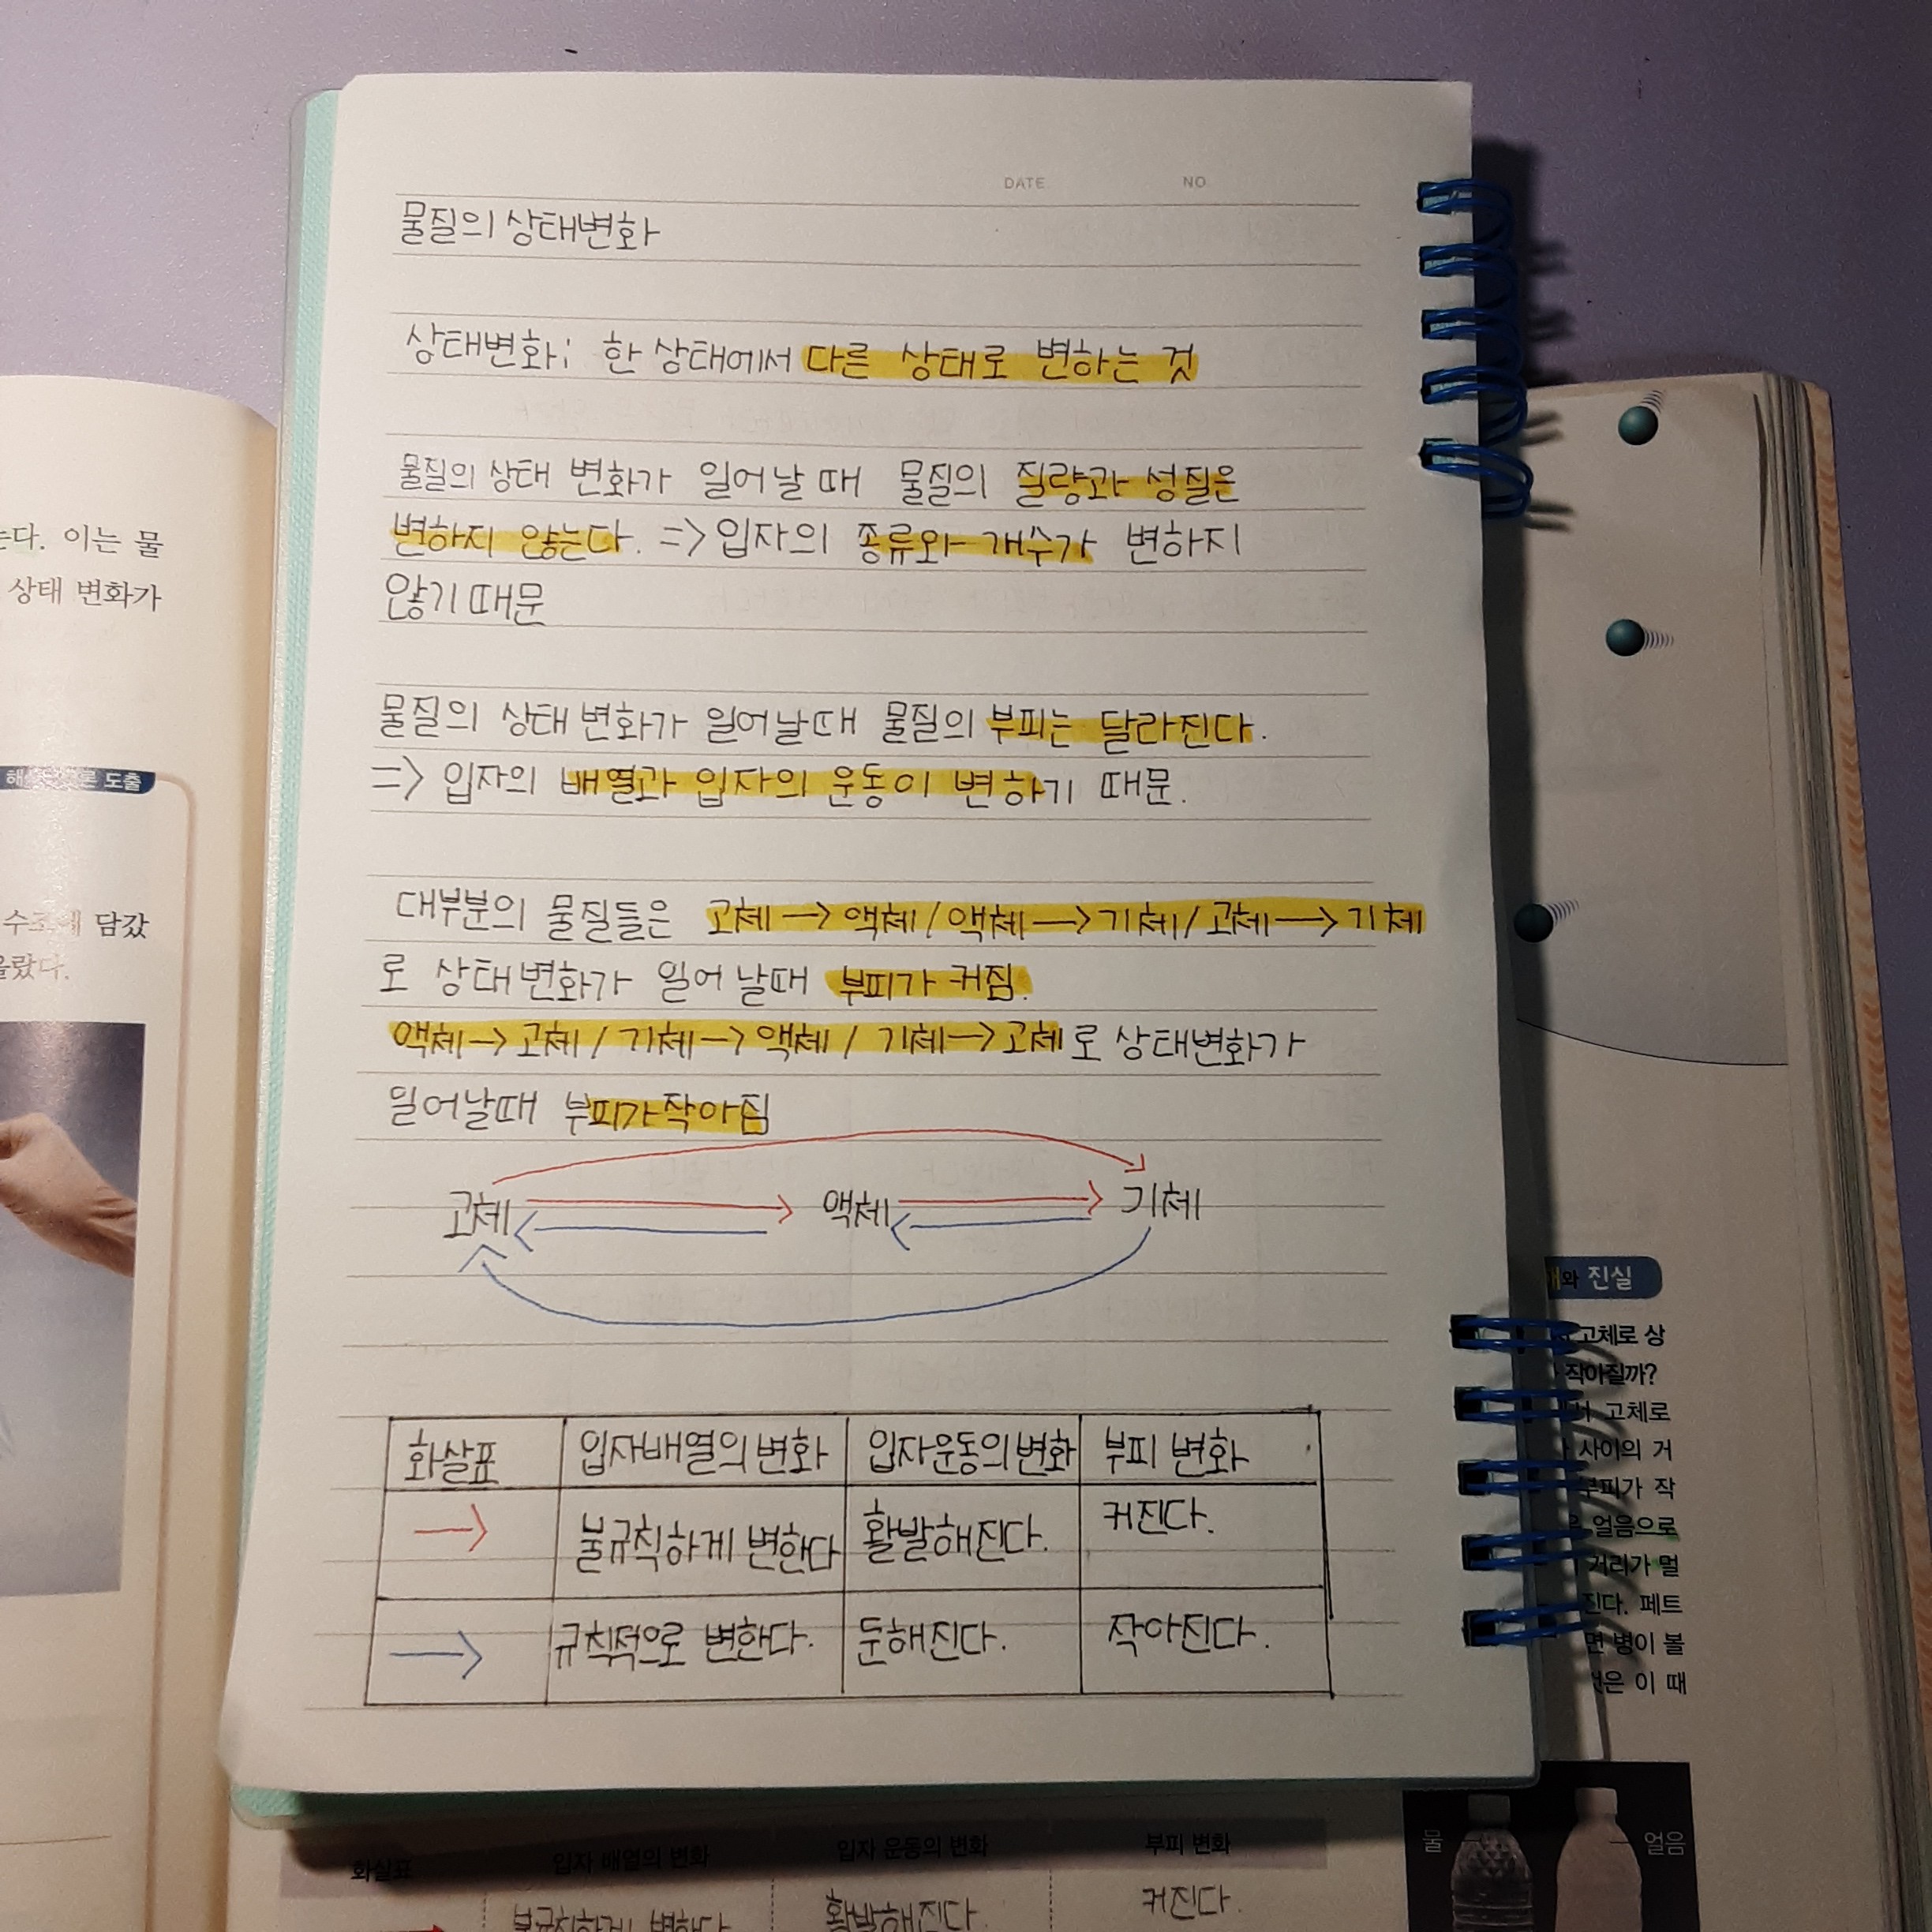 DATE NO
물질의 상태변화
상태변화: 한 상태에서 다른 상태로 변하는 것
물질의 상태 변화가 일어날 때 물질의 질량과 성질은
변하지 않는다. => 입자의 종류와 개수가 변하지
않기 때문
물질의 상태 변화가 일어날때 물질의 부피는 달라진다.
=> 입자의 배열과 입자의 운동이 변하기 때문.
대부분의 물질들은 고체 → 액체 / 액체 → 기체 / 고체 → 기체
로 상태변화가 일어날때 부피가 커짐.
액체 → 고체 / 기체 → 액체 / 기체 → 고체로 상태변화가
일어날때 부피가 작아짐
고체 액체 기체
화살표 입자배열의 변화 입자운동의 변화 부피 변화
→ 불규칙하게 변한다 활발해진다. 커진다.
→ 규칙적으로 변한다. 둔해진다. 작아진다.
이는 물
상태 변화가
도출
담갔
진실
고체로 상
작아질까?
고체로
사이의 거
부피가 작
얼음으로
거리가 멀
페트
면 병이 볼
은 이 때
물 얼음
화살표 입자 배열의 변화 입자 운동의 변화 부피 변화
불규칙하게 변한다 활발해진다. 커진다.